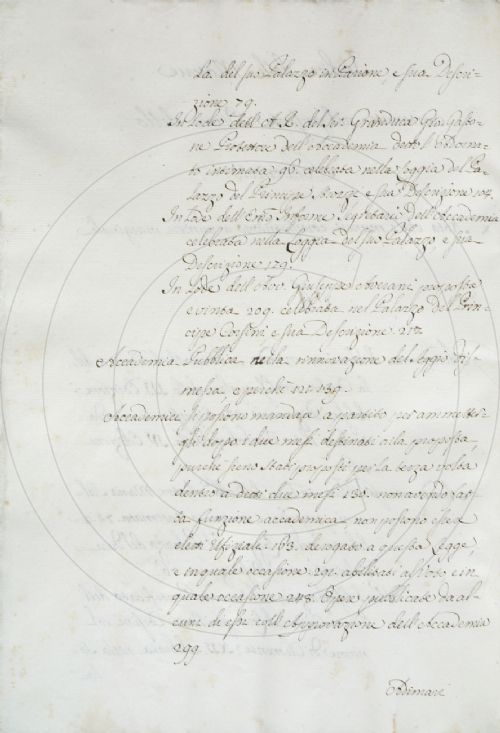 ta del suo Palazzo in Parione, e sua Descri-
zione 79.
In Lode dell' A. R. del Ser. Granduca Gio: Gasto-
ne Protettore dell' Accademia detto l'
to intimata 96. celebrata nella Loggia del Pa-
lazzo del Principe e sua Descrizione 104.
In Lode dell' Emo dell' Accademia
celebrata nella Loggia del suo Palazzo e sua
Descrizione 179.
In Lode dell' Avv. Giuseppe Averani proposta
e vinta 209. celebrata nel Palazzo del Prin-
cipe Corsini e sua Descrizione 217
Accademia Pubblica nella rinnovazione del Seggio dis-
messa, e perchè 121. 139.
Accademici si possono mandare a partito per ammetter-
gli dopo i due mesi destinati alla proposta
purchè sieno stati proposti per la terza volta
dentro a detti due mesi 130. non avendo fat-
ta funzione accademica non possono esser
eletti Ufiziali 163. derogato a questa Legge,
e in quale occasione 291. abilitati al Voto e in
quale occasione 248. Opere pubblicate da al-
cuni di essi coll' Approvazione dell' Accademia
299
Adimari